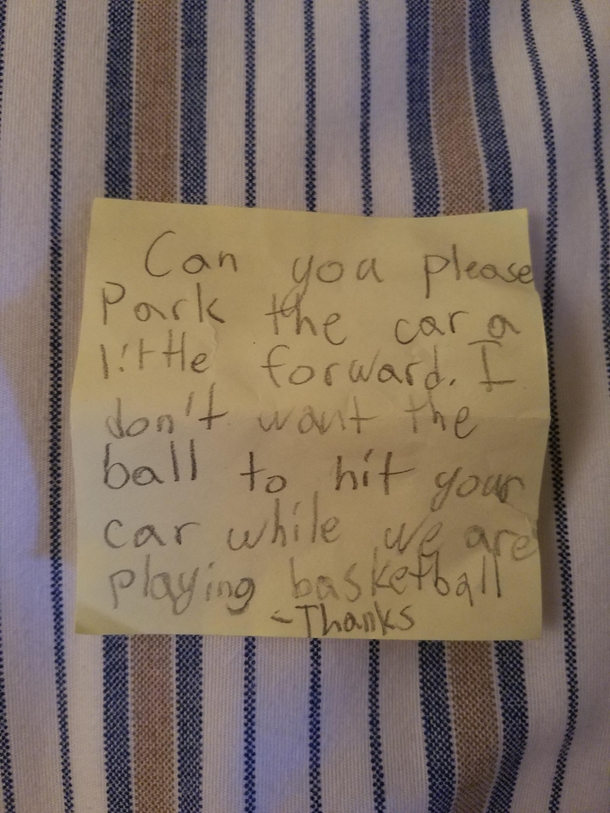 Can you please
Park the car a
little forward. I
don't want the
ball to hit your
car while we are
playing basketball
-Thanks